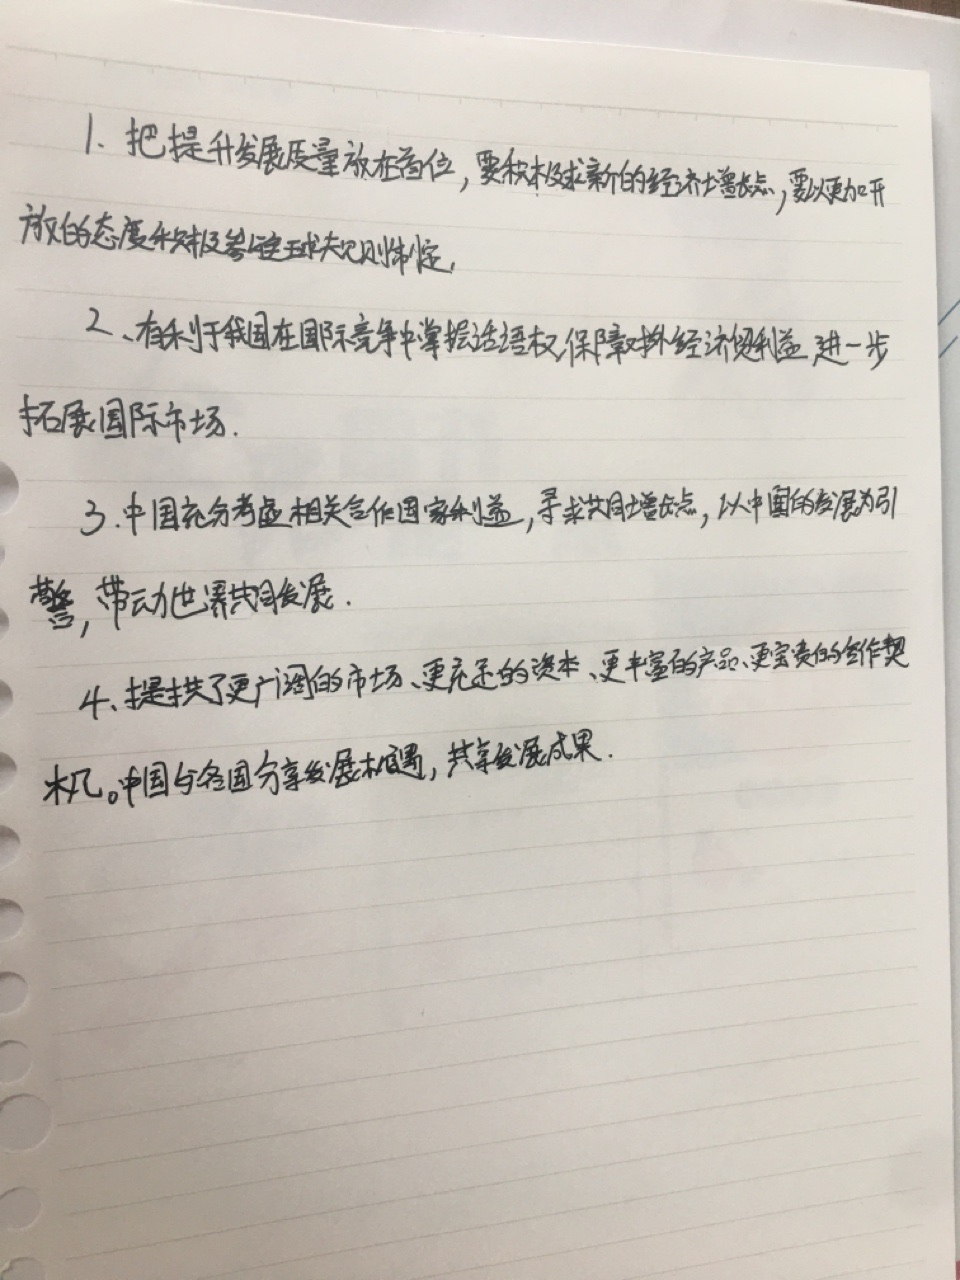 1、把提升发展质量放在首位，要积极求新的经济增长点，要以更加开
放的态度积极参与全球规则制定，
2、有利于我国在国际竞争中掌握话语权，保障对外经济贸利益 进一步
拓展国际市场．
3．中国充分考虑相关合作国家利益，寻求共同增长点，以中国的发展为引
警，带动世界共同发展．
4、提拱了更广阔的市场、更充足的资本、更丰富的产品、更宝贵的合作契
机。中国与各国分享发展机遇，共享发展成果．